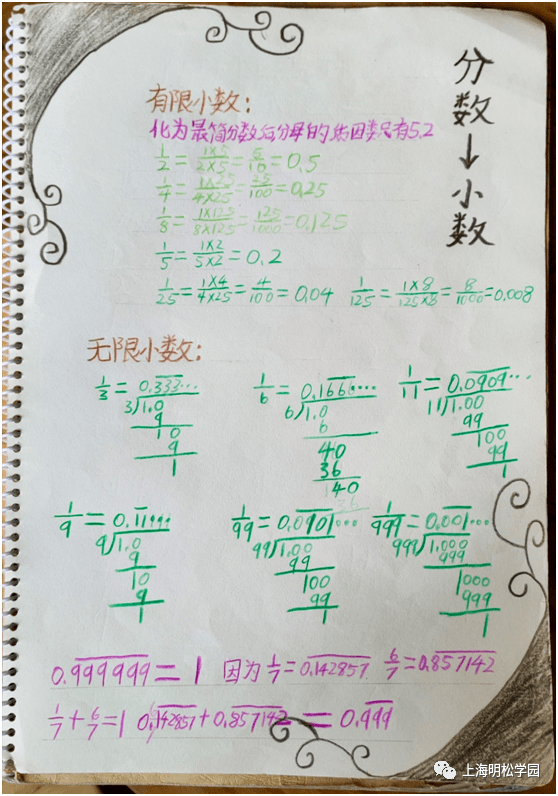 分数→小数
有限小数:
化为最简分数后分母的质因数只有5.2
1/2=1×5/2×5=5/10=0.5
1/4=1×25/4×25=25/100=0.25
1/8=1×125/8×125=125/1000=0.125
1/5=1×2/5×2=0.2
1/25=1×4/4×25=4/100=0.04 1/125=1×8/125×8=8/1000=0.008
无限小数:
1/3=0.333… 1/6=0.1666… 1/11=0.0909…
3)1.0 6)1.0 11)1.00
9 6 99
10 40 100
9 36 99
1 40 1
36
1/9=0.11999 1/99=0.0101… 1/999=0.001…
9)1.0 99)1.00 999)1.000
9 99 999
10 100 1000
9 99 999
1 1 1
0.999999=1 因为1/7=0.142857 6/7=0.857142
1/7+6/7=1 0.142857+0.857142=0.999
上海明松学园